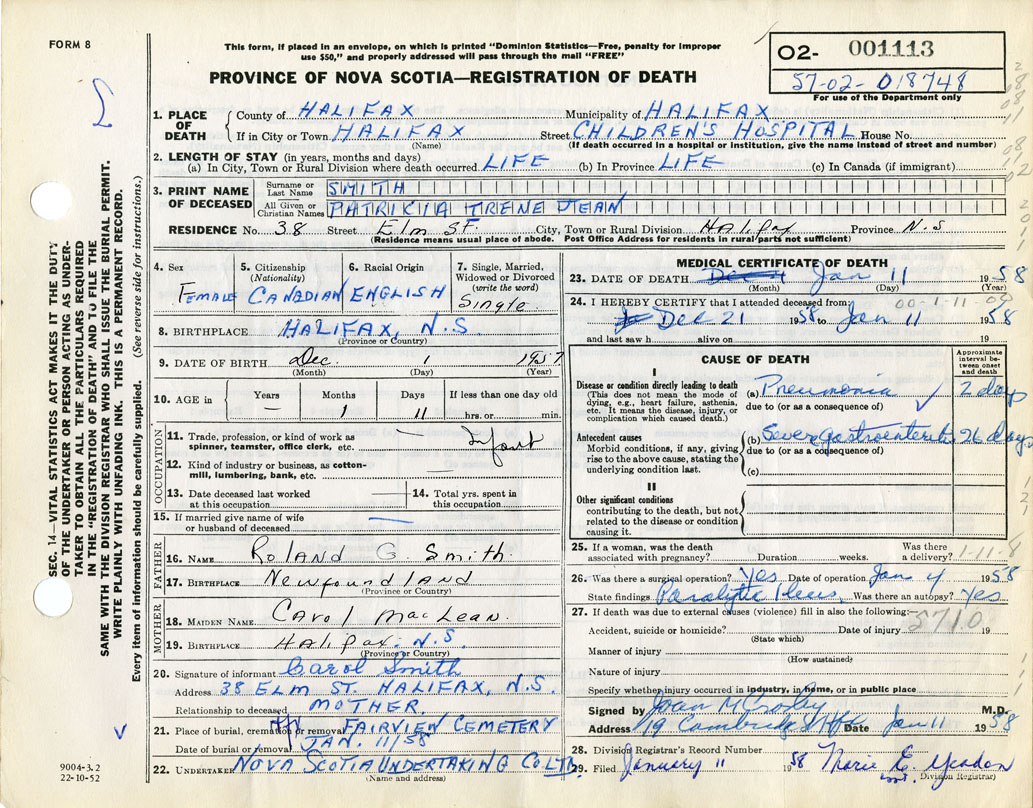 FORM 8
This form, if placed in an envelope, on which is printed "Dominion Statistics—Free, penalty for improper
use $50," and properly addressed will pass through the mail "FREE"
PROVINCE OF NOVA SCOTIA—REGISTRATION OF DEATH
02- 001113
57-02-018748
For use of the Department only
SEC. 14—VITAL STATISTICS ACT MAKES IT THE DUTY
OF THE UNDERTAKER OR PERSON ACTING AS UNDER-
TAKER TO OBTAIN ALL THE PARTICULARS REQUIRED
IN THE "REGISTRATION OF DEATH" AND TO FILE THE
SAME WITH THE DIVISION REGISTRAR WHO SHALL ISSUE THE BURIAL PERMIT.
WRITE PLAINLY WITH UNFADING INK. THIS IS A PERMANENT RECORD.
Every item of information should be carefully supplied. (See reverse side for instructions.)
1. PLACE OF DEATH
County of HALIFAX Municipality of HALIFAX
If in City or Town HALIFAX Street CHILDREN'S HOSPITAL House No.
(Name) (If death occurred in a hospital or institution, give the name instead of street and number)
2. LENGTH OF STAY (in years, months and days)
(a) In City, Town or Rural Division where death occurred LIFE (b) In Province LIFE (c) In Canada (if immigrant)
3. PRINT NAME OF DECEASED
Surname or Last Name SMITH
All Given or Christian Names PATRICIA IRENE JEAN
RESIDENCE No. 38 Street Elm St. City, Town or Rural Division Halifax Province N.S
(Residence means usual place of abode. Post Office Address for residents in rural parts not sufficient)
4. Sex
Female
5. Citizenship
(Nationality)
CANADIAN
6. Racial Origin
ENGLISH
7. Single, Married,
Widowed or Divorced
(write the word)
Single
8. BIRTHPLACE HALIFAX, N.S.
(Province or Country)
9. DATE OF BIRTH Dec. 1 1957
(Month) (Day) (Year)
10. AGE in
Years Months Days If less than one day old
— 1 11 hrs. or min.
OCCUPATION
11. Trade, profession, or kind of work as
spinner, teamster, office clerk, etc. — Infant
12. Kind of industry or business, as cotton-
mill, lumbering, bank, etc.
13. Date deceased last worked
at this occupation —
14. Total yrs. spent in
this occupation
15. If married give name of wife
or husband of deceased —
FATHER
16. NAME Roland G. Smith.
17. BIRTHPLACE Newfoundland
(Province or Country)
MOTHER
18. MAIDEN NAME Carol MacLean
19. BIRTHPLACE Halifax. N.S
(Province or Country)
20. Signature of informant Carol Smith
Address 38 ELM ST. HALIFAX, N.S.
Relationship to deceased MOTHER.
21. Place of burial, cremation or removal FAIRVIEW CEMETERY
Date of burial or removal JAN. 11/58
22. UNDERTAKER NOVA SCOTIA UNDERTAKING CO LTD.
(Name and address)
9004-3.2
22-10-52
MEDICAL CERTIFICATE OF DEATH
23. DATE OF DEATH Jan 11 1958
(Month) (Day) (Year)
24. I HEREBY CERTIFY that I attended deceased from:
Dec 21 1958 to Jan 11 1958
and last saw h alive on 19
CAUSE OF DEATH
Approximate
interval be-
tween onset
and death
I
Disease or condition directly leading to death
(This does not mean the mode of
dying, e.g., heart failure, asthenia,
etc. It means the disease, injury, or
complication which caused death.)
(a) Pneumonia 2 days
due to (or as a consequence of)
Antecedent causes
Morbid conditions, if any, giving
rise to the above cause, stating the
underlying condition last.
(b) Sever gastroenteritis 26 days
due to (or as a consequence of)
(c)
II
Other significant conditions
contributing to the death, but not
related to the disease or condition
causing it.
25. If a woman, was the death
associated with pregnancy? Duration weeks. Was there
a delivery? 1-11-8
26. Was there a surgical operation? Yes Date of operation Jan 4 1958
State findings Paralytic Ileus Was there an autopsy? Yes
27. If death was due to external causes (violence) fill in also the following:
Accident, suicide or homicide? Date of injury 19
(State which)
5710
Manner of injury
(How sustained)
Nature of injury
Specify whether injury occurred in industry, in home, or in public place
Signed by Joan M Crosby M.D.
Address 19 Cambridge St Hfx Date Jan 11 1958
28. Division Registrar's Record Number
29. Filed January 11 1958 Marie E. Yeadon
Division Registrar)